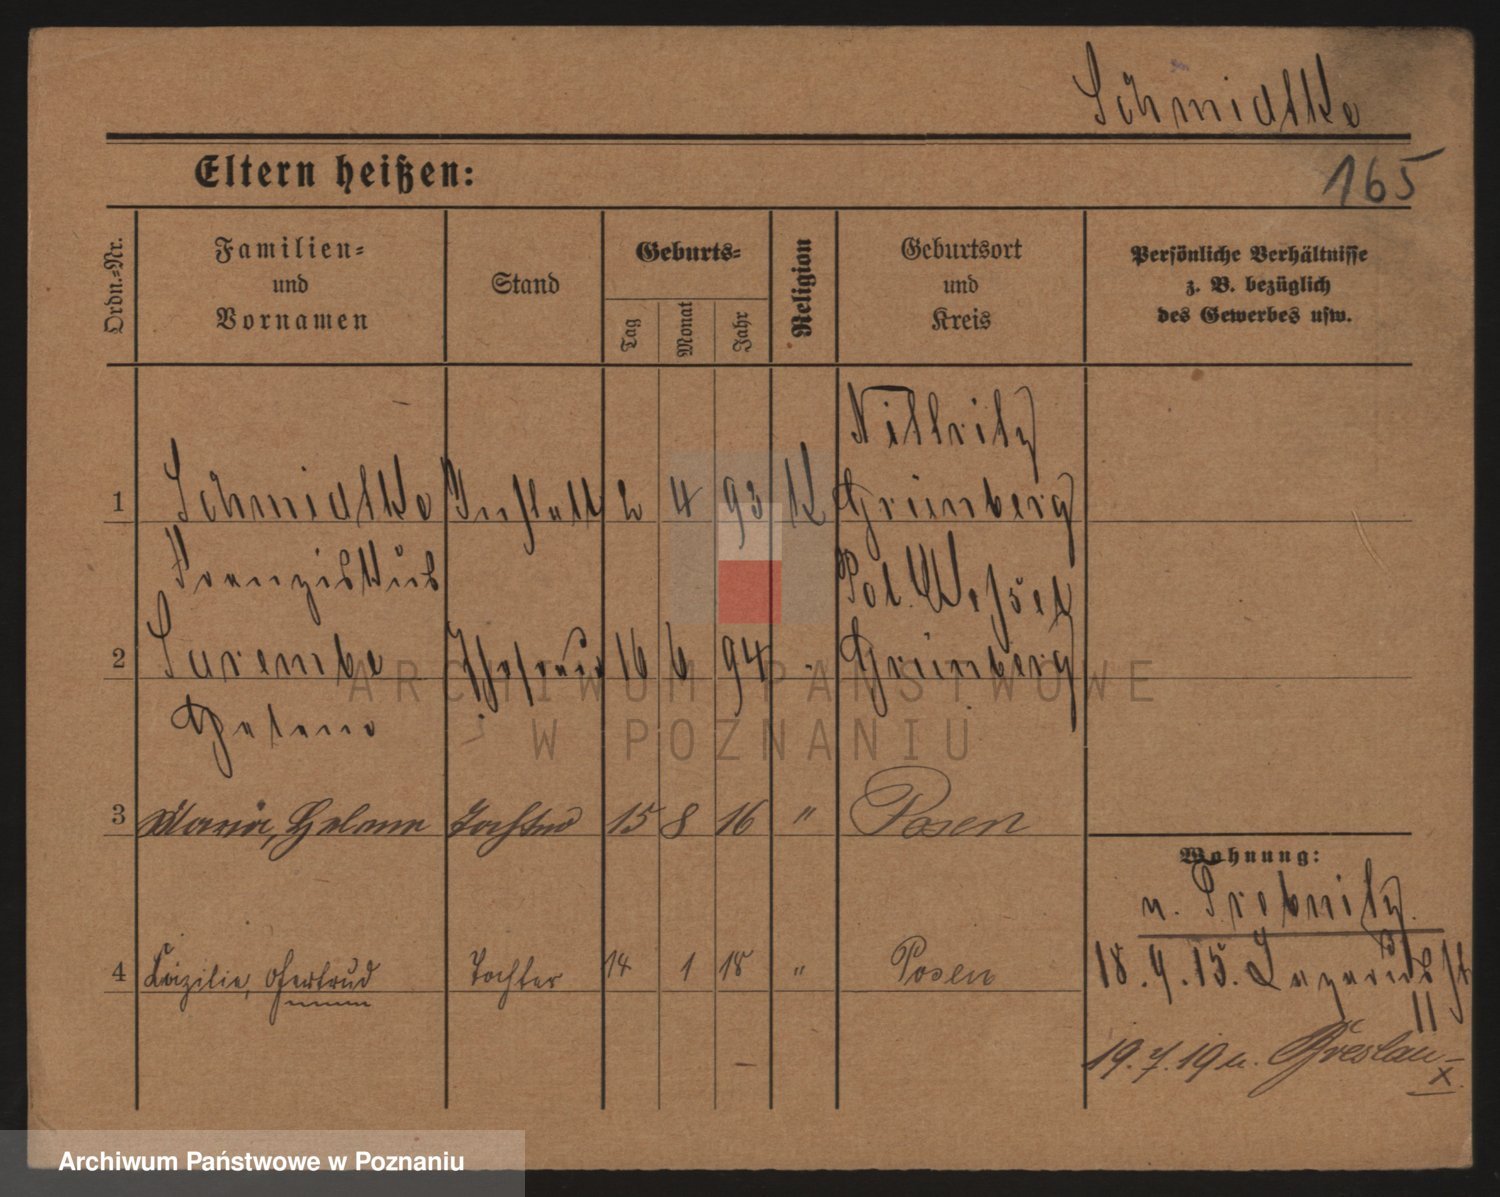 Schmidtke
165
Eltern heißen:
Ordn.-Nr.
Familien-
und
Vornamen
Stand
Geburts-
Tag
Monat
Jahr
Religion
Geburtsort
und
Kreis
Persönliche Verhältnisse
z. B. bezüglich
des Gewerbes usw.
Nittritz
1 Schmidtke 2 4 93 K Grünberg
Franziskus Pol. Wessel
2 Surembe Ehefrau 16 6 94 Grünberg
Helene
3 Maria, Helene Tochter 15 8 16 " Posen
Wohnung:
n. Trebnitz.
4 Cäzilie, Gertrud Tochter 14 1 18 " Posen
18.9.15. Lazarusstr
11
19.7.19 n. Breslau
x
ARCHIWUM PAŃSTWOWE
W POZNANIU
Archiwum Państwowe w Poznaniu